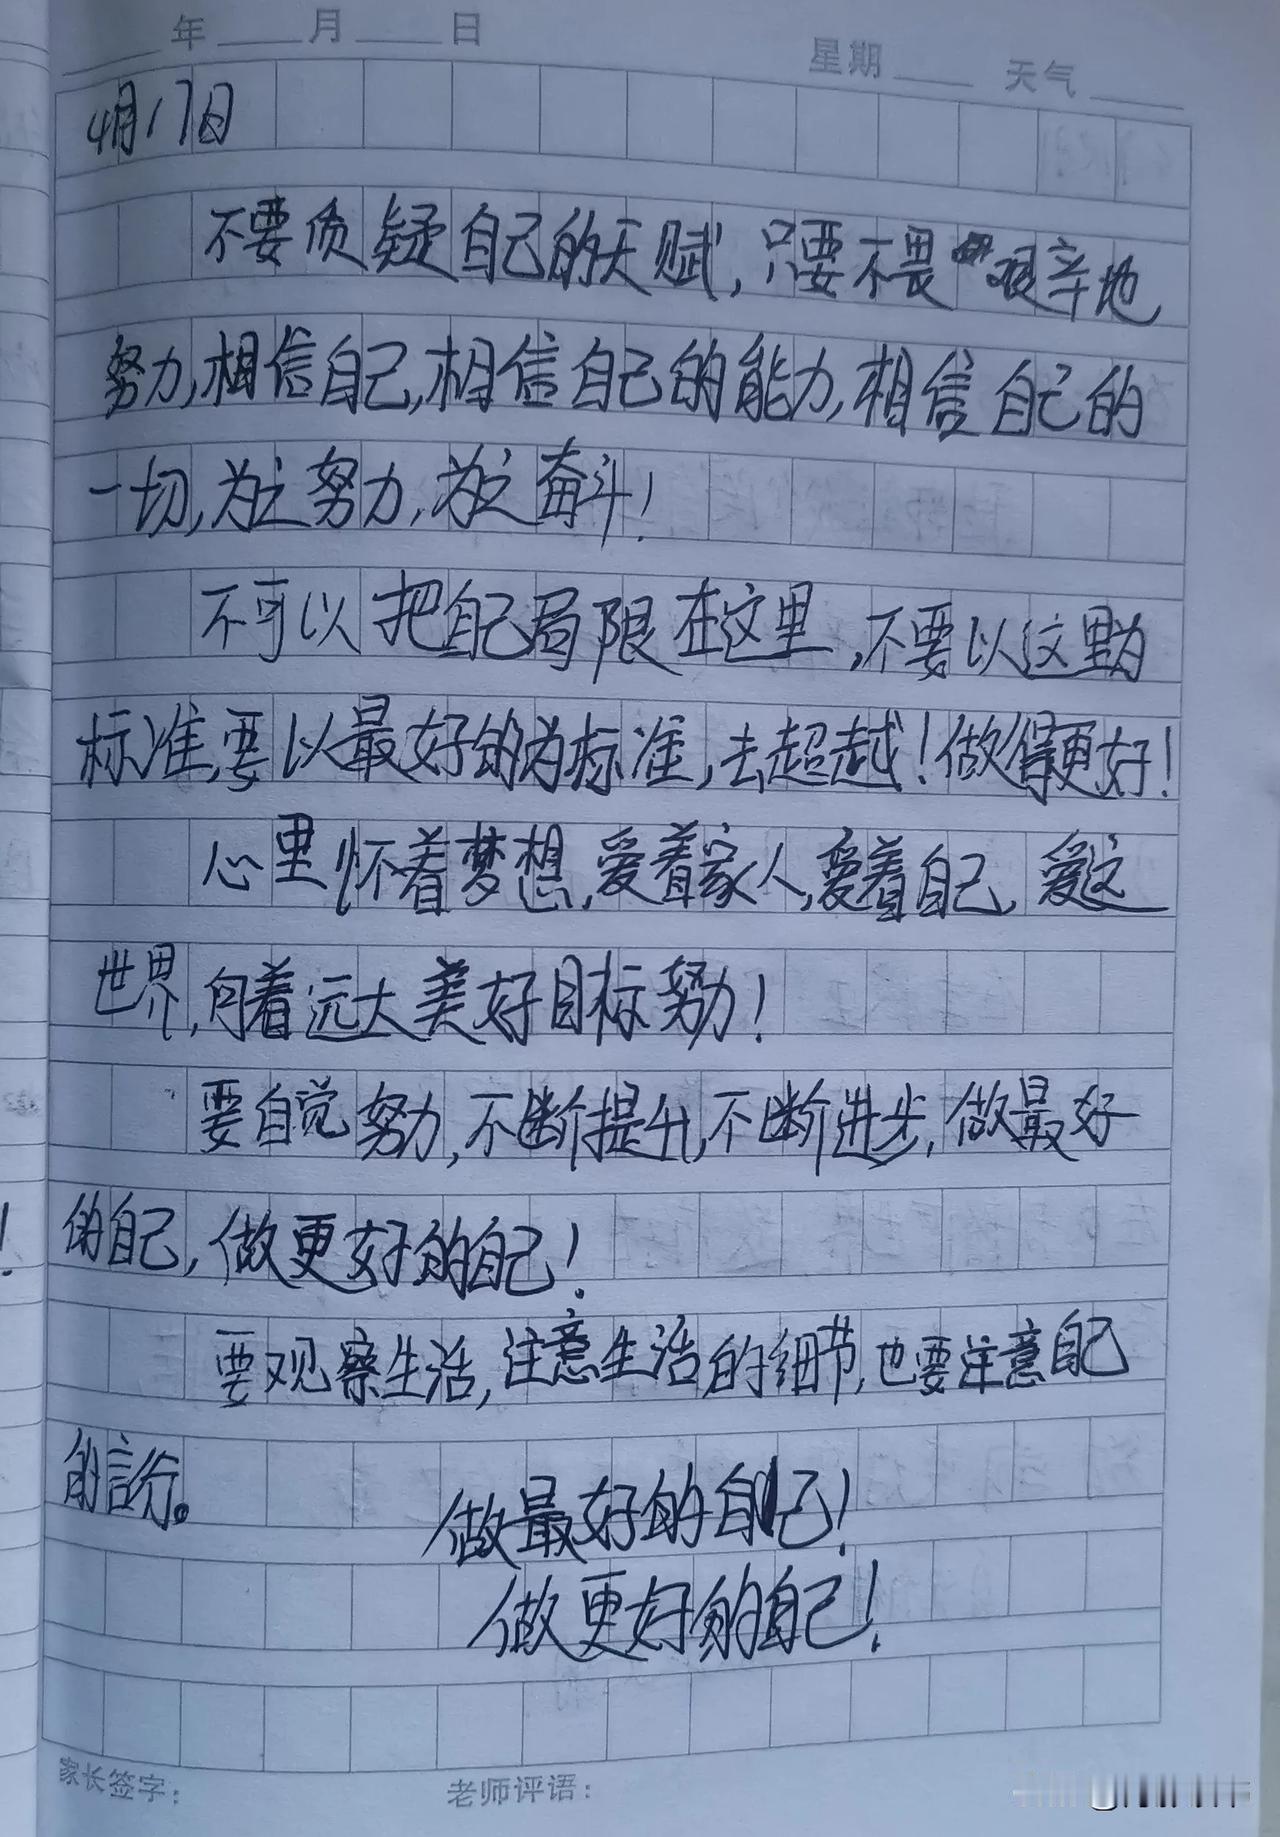 年 月 日 星期 天气
4月17日
不要质疑自己的天赋,只要不畏艰辛地
努力,相信自己,相信自己的能力,相信自己的
一切,为之努力,为之奋斗!
不可以把自己局限在这里,不要以这里为
标准,要以最好的为标准,去超越!做得更好!
心里怀着梦想,爱着家人,爱着自己,爱这
世界,向着远大美好目标努力!
要自觉努力,不断提升,不断进步,做最好
的自己,做更好的自己!
要观察生活,注意生活的细节,也要注意自己
的言行。
做最好的自己!
做更好的自己!
家长签字: 老师评语: